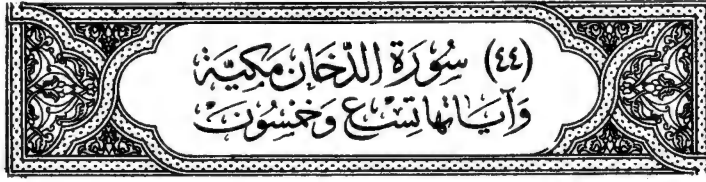 (٤٤) سُورَة الدّخَان مَكيَّة
وَآيَاتها تِسْع وَخمْسُونَ